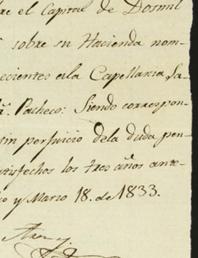 re el Capital de Dosmil
sobre su Hacienda nom-
ecientes ala Capellania La-
Pacheco: Siendo correspon-
sin perjuicio dela duda pen-
atisfechos los tres años ante-
io y Marzo 18. de 1833.